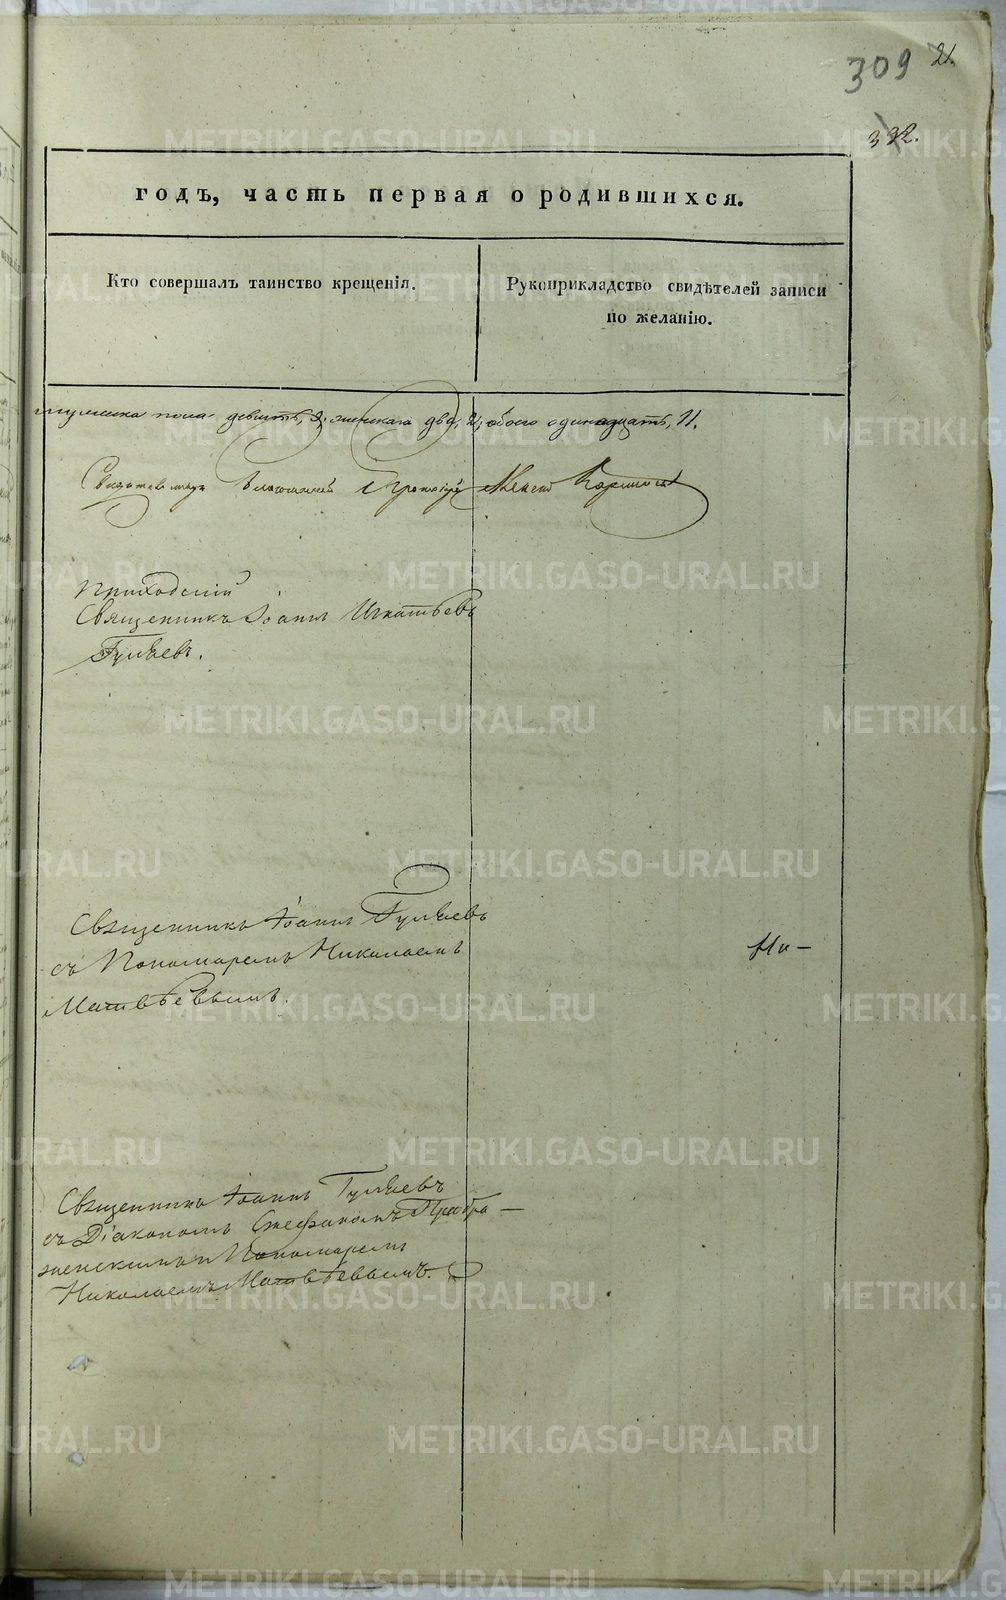 309 21.
392.
годъ, часть первая о родившихся.
Кто совершалъ таинство крещенія.
Рукоприкладство свидѣтелей записи
по желанію.
мужеска пола девять, 9, женскаго два, 2, обоего одинадцать, 11.
Приходскій
Священникъ Іоаннъ Игнатьевъ
Гуляевъ.
Священникъ Іоаннъ Гуляевъ
съ Пономаремъ Николаемъ
Матвѣевымъ.
Священникъ Іоаннъ Гуляевъ
съ Діакономъ Стефаномъ Преобра-
женскимъ и Пономаремъ
Николаемъ Матвѣевымъ.
METRIKI.GASO-URAL.RU